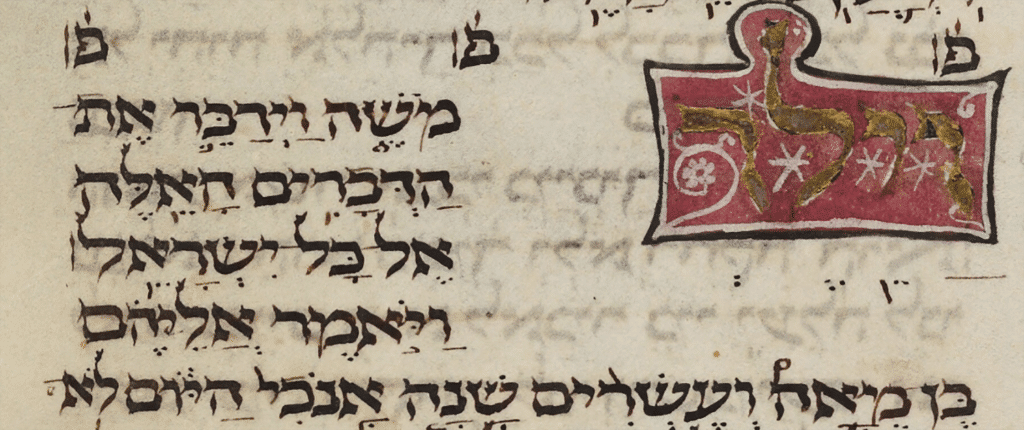 פ פ פ
וַיֵּלֶךְ
מֹשֶׁה וַיְדַבֵּר אֶת
הַדְּבָרִים הָאֵלֶּה
אֶל כָּל יִשְׂרָאֵל
וַיֹּאמֶר אֲלֵיהֶם
בֶּן מֵאָה וְעֶשְׂרִים שָׁנָה אָנֹכִי הַיּוֹם לֹא